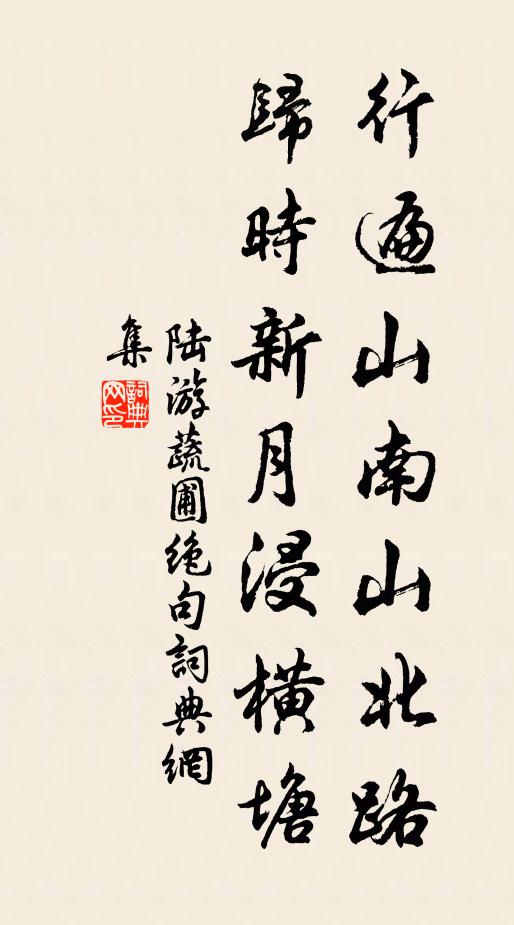 行遍山南山北路
歸時新月浸橫塘
陆游蔬圃绝句詞典網
集
詞典網印